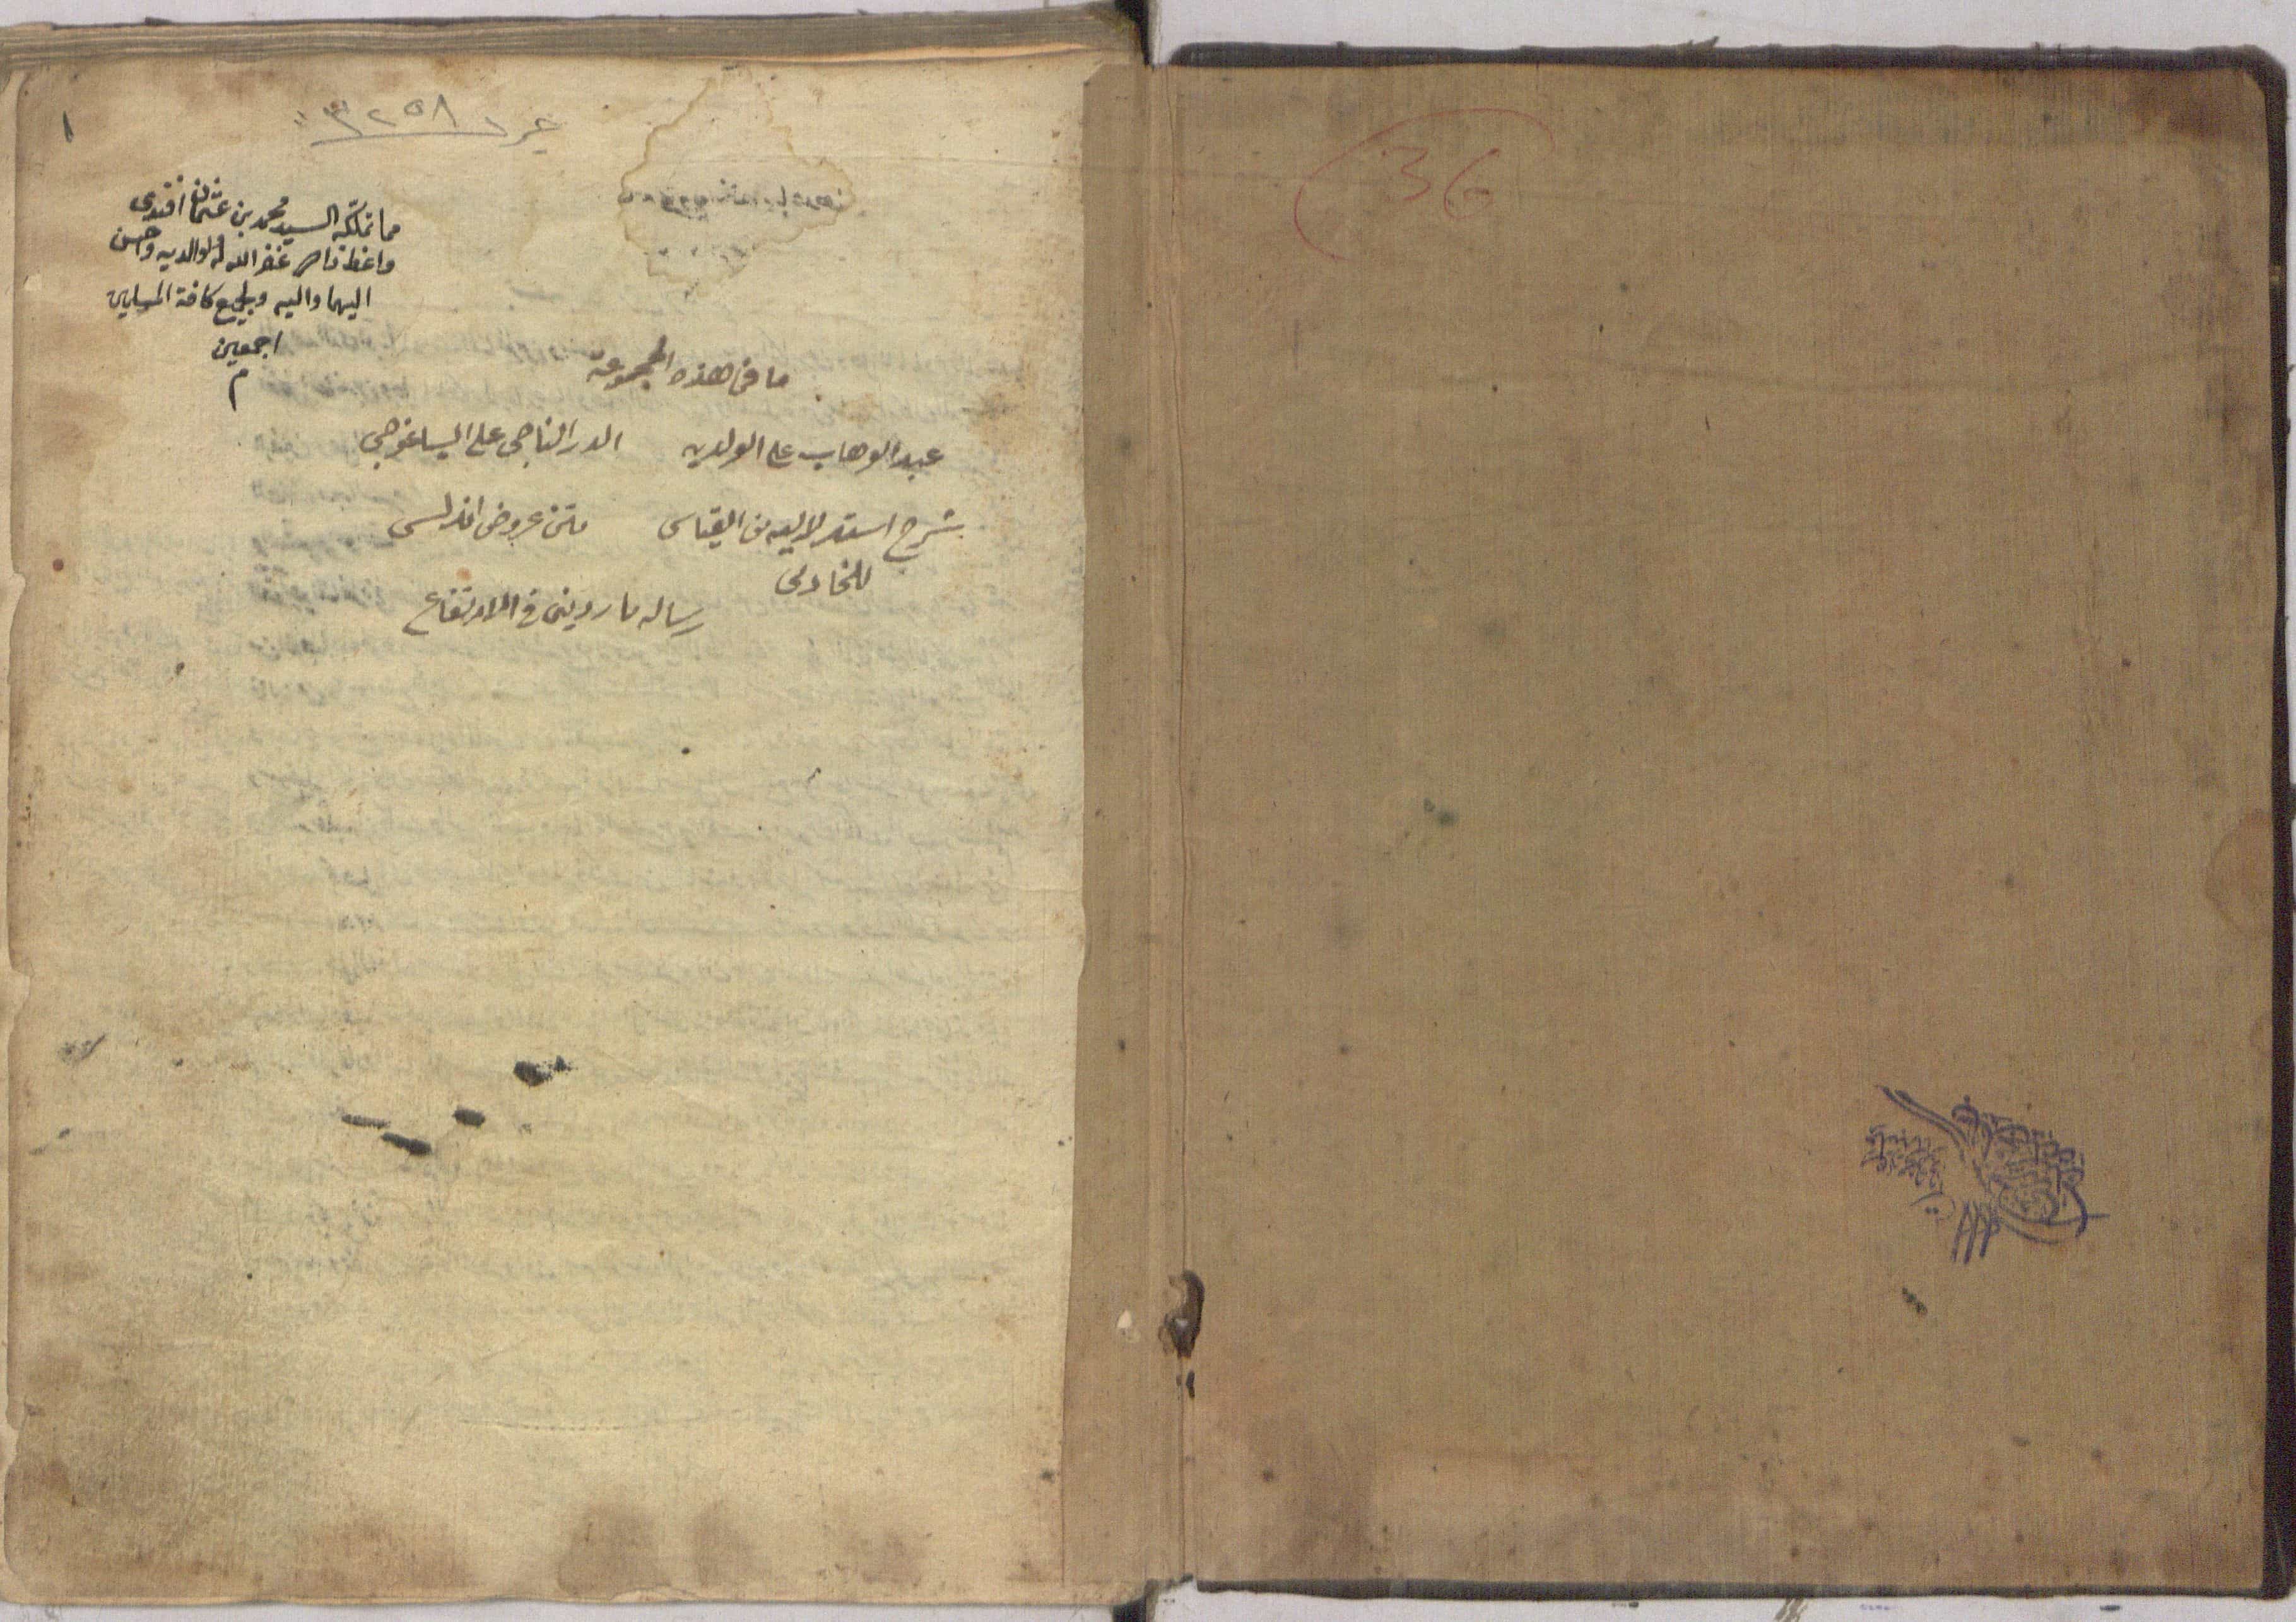 36
١
٣٢٥٨
مما تملكه السيد محمد بن عثمان افندى
واعظ غفر الله له ولوالديه واحسن
اليهما واليه ولجميع كافة المسلمين
اجمعين
م
ما فى هذه المجموعة
عبد الوهاب على الولديه الدر الناجى على ايساغوجى
شرح استدلاليه من القياسى متن عروض اندلسى
للخادمى
رساله ماردينى فى الارتفاع